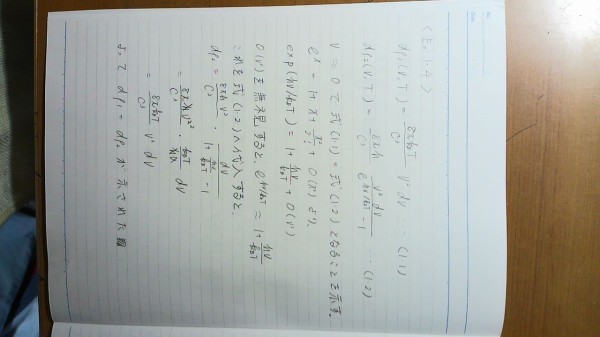 <Ex 1.4>
dρ₁(ν,T) = 8πk_BT/C³ ν² dν … (1.1)
dρ₂(ν,T) = 8πh/C³ ν³dν/(e^{hν/k_BT} - 1) … (1.2)
ν≒0で式(1.1)=式(1.2)となることを示す。
e^x = 1 + x + x²/2! + O(x³) より、
exp(hν/k_BT) = 1 + hν/k_BT + O(ν²)
O(ν²)を無視すると、e^{hν/k_BT} ≒ 1 + hν/k_BT
これを式(1.2)へ代入すると、
dρ₂ = 8πhν³/C³ · dν/(1 + hν/k_BT - 1)
= 8πhν³/C³ · k_BT/hν dν
= 8πk_BT/C³ ν² dν
よって dρ₁ = dρ₂ が示された